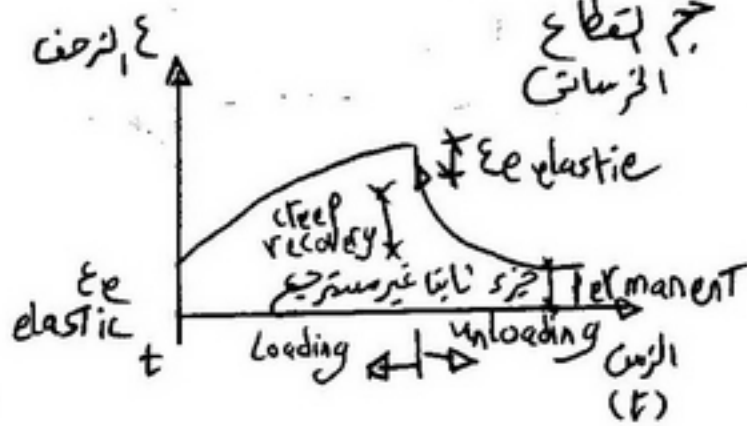 حجم القطاع
الخرساني
ε الزحف
εe elastic
creep
recovery
جزء ثابتا غير مسترجع
permanent
εe
elastic
t
Loading
unloading
الزمن
(t)